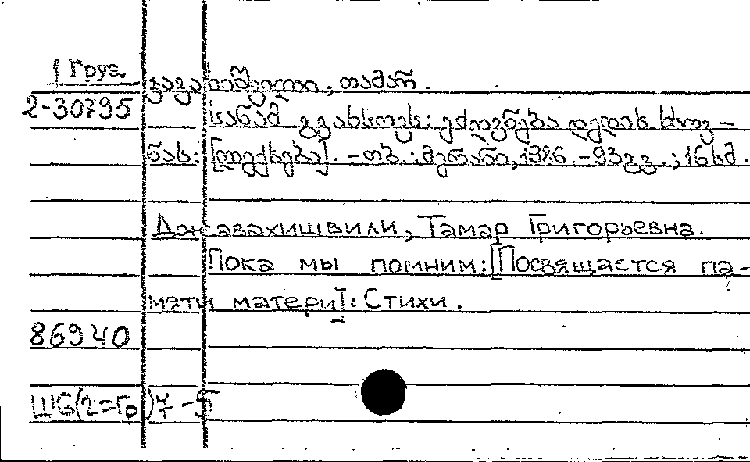 Груз.
2-30795
თამარ.
სანამ გვახსოვს: ეძღვნება დედის ხსოვ-
ნას: [ლექსები]. - თბ.: მერანი, 1986. - 93 გვ.; 16 სმ.
Джавахишвили, Тамар Григорьевна.
Пока мы помним: [Посвящается па-
мяти матери]: Стихи.
86940